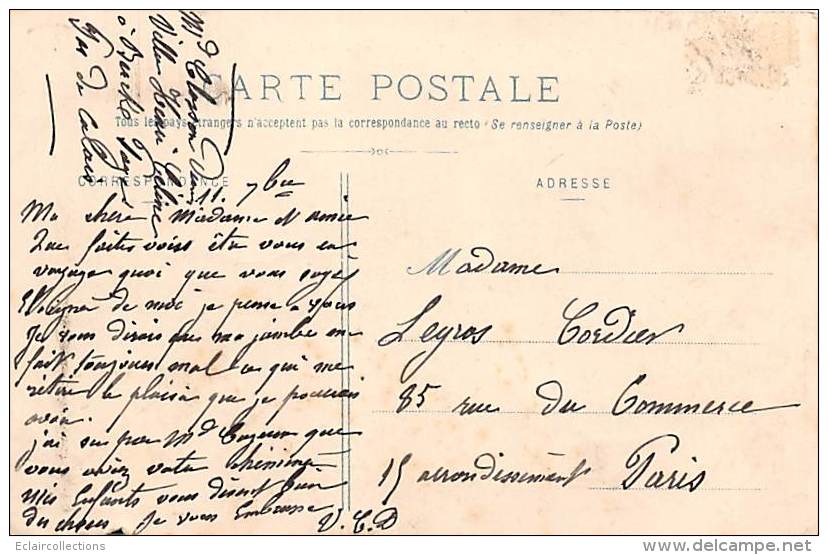 CARTE POSTALE
Tous les pays étrangers n'acceptent pas la correspondance au recto (Se renseigner à la Poste)
CORRESPONDANCE
ADRESSE
Villa Henri
à Berck Plage
Pas de Calais
11. 7bre
Ma chere Madame et amie
Que faites vous êtes vous en
voyage quoi que vous soyez
Eloigné de moi je pense a vous
Je vous dirais que ma jambe me
fait toujours mal ce qui me
retire le plaisir que je pourrais
avoir
j'ai su par Md que
vous aviez votre
mes Enfants vous disent bien
des choses Je vous Embrasse
V. C. D
Madame
Leyros Cordier
85 rue du Commerce
15 arrondissement Paris
Eclaircollections
delcampe.net